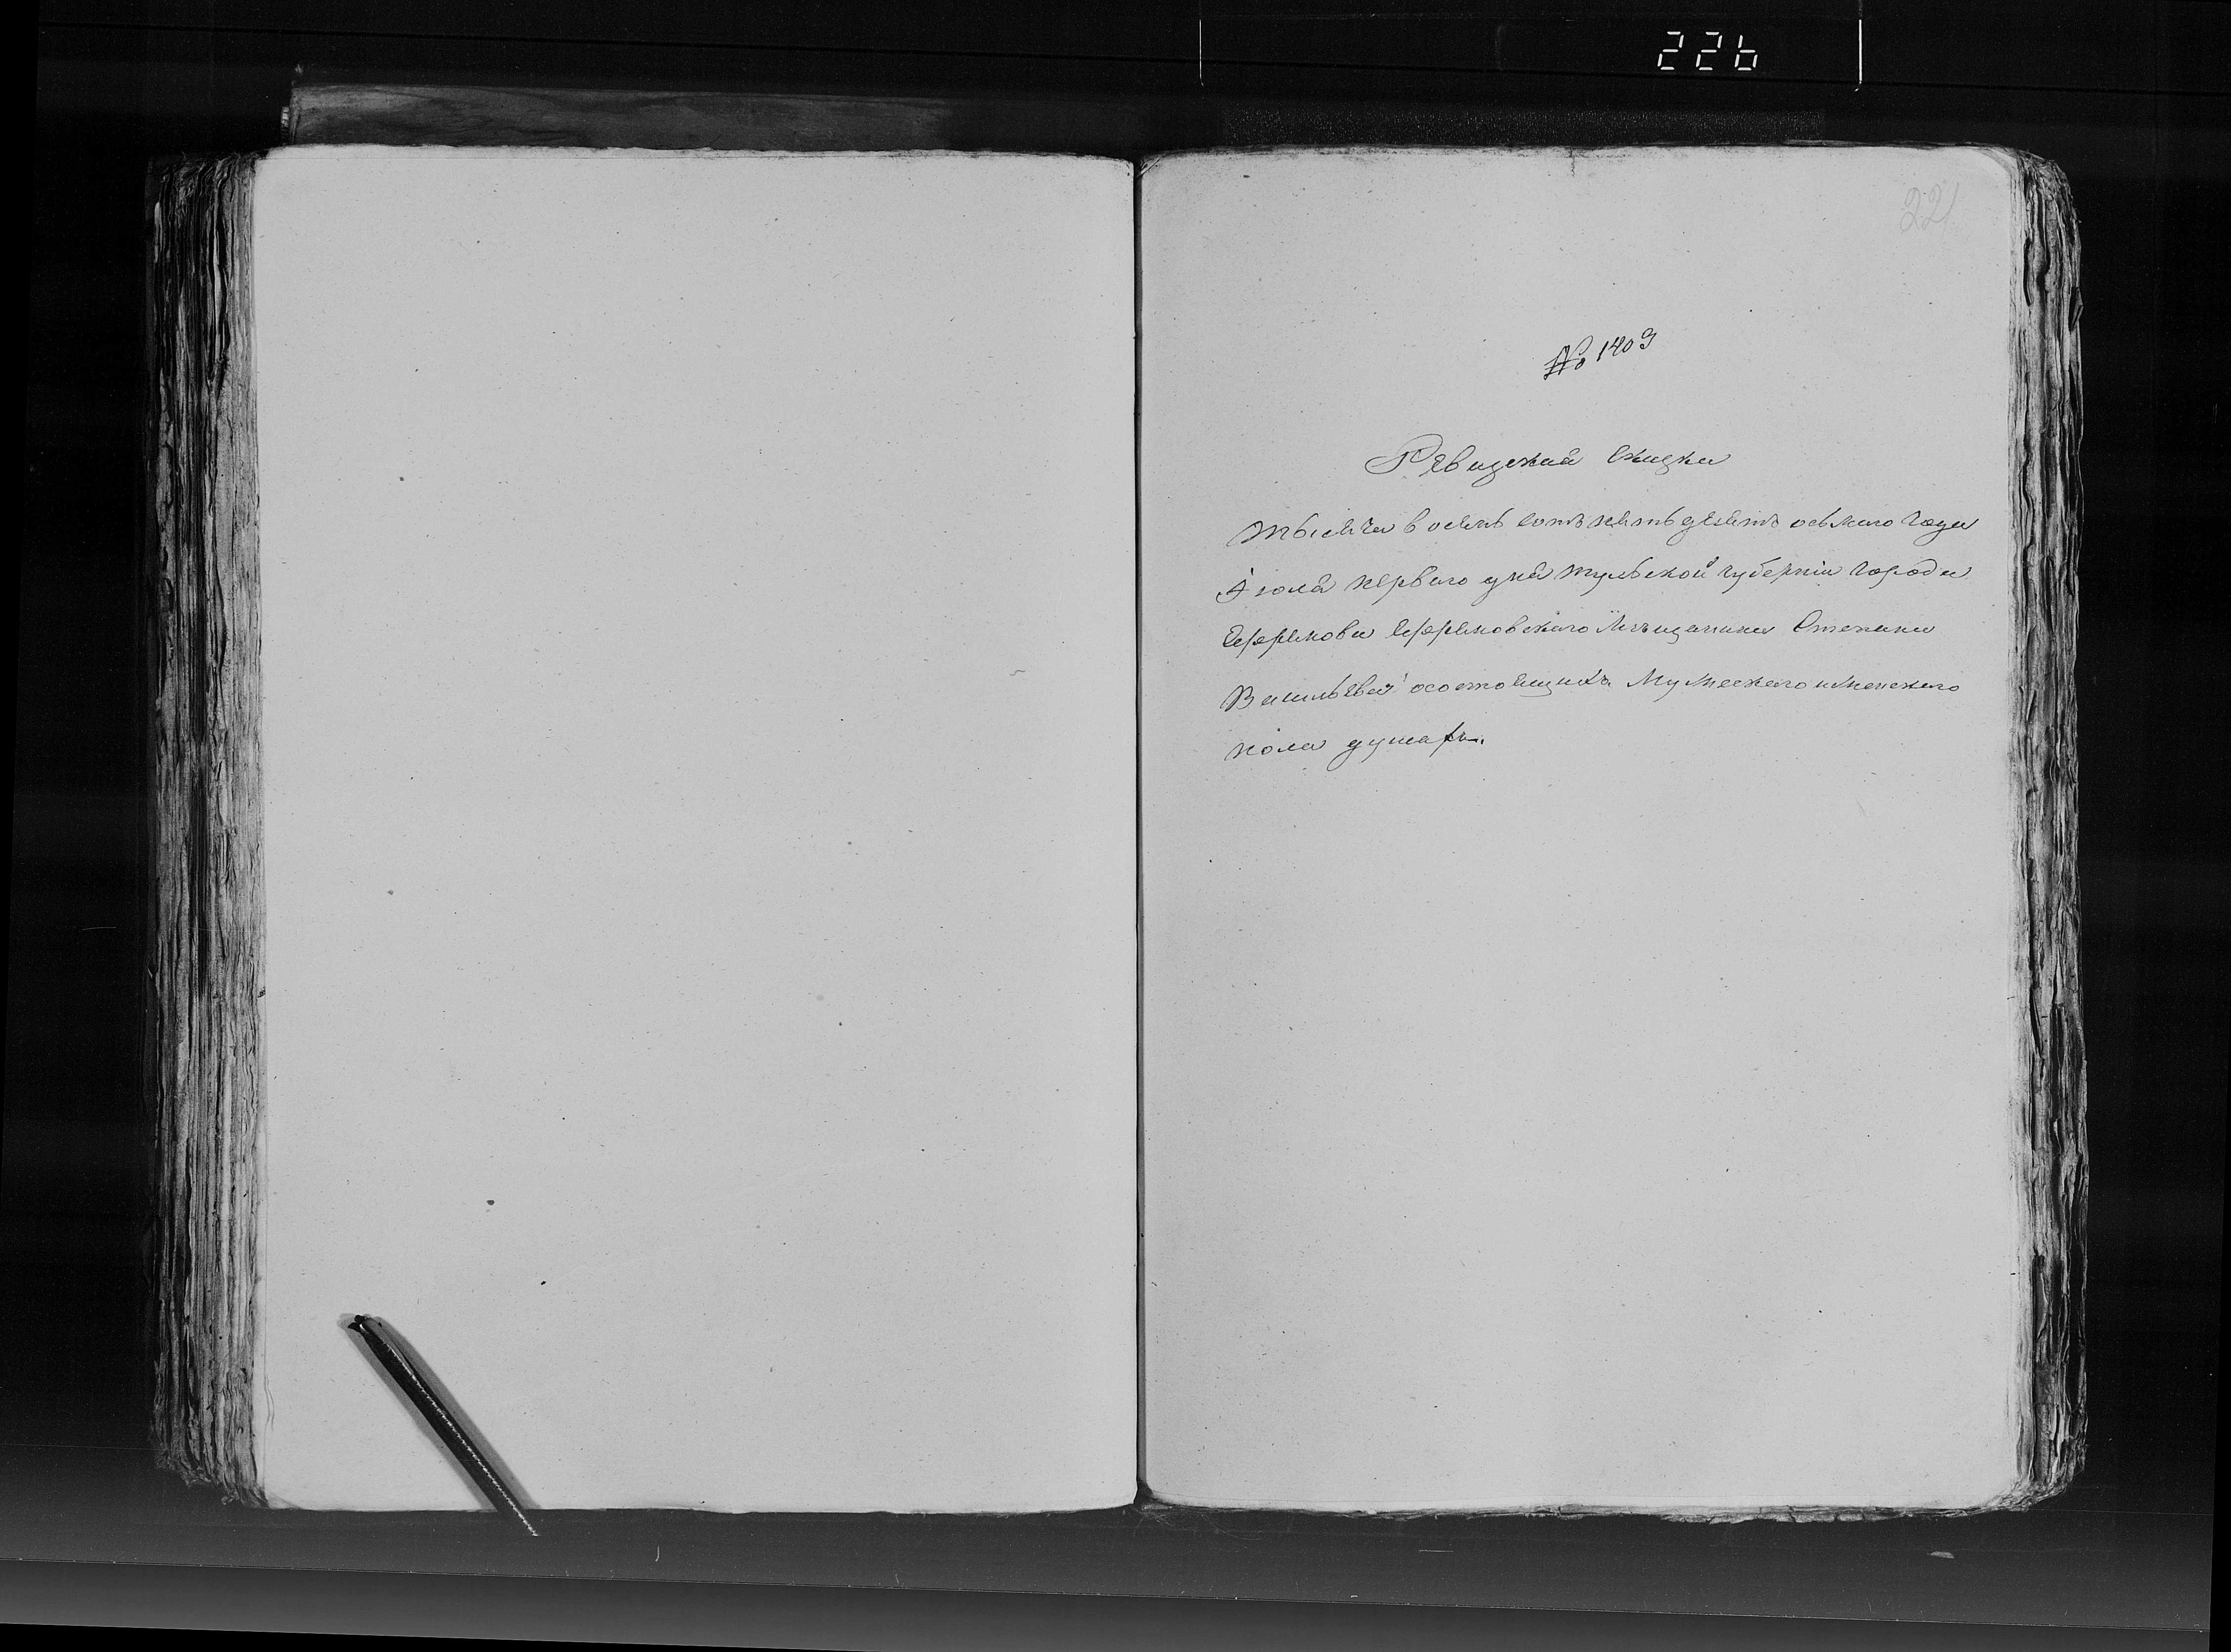 226
221
№ 1409
Ревизская Скаска
Тысяча восемь сотъ пятьдесятъ осьмаго года
Іюля перваго дня Тульской губерніи города
Ефремова Ефремовскаго Мѣщанина Степана
Васильева осостоящихъ Мужескаго и женскаго
пола душахъ.